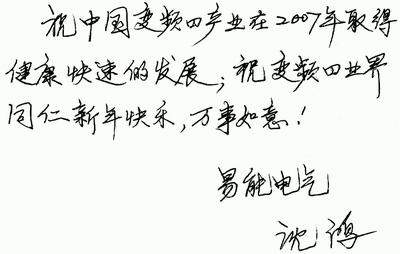 祝中国变频四产业在2007年取得
健康快速的发展;祝变频四业界
同仁新年快乐,万事如意!
易能电气
沈鸿